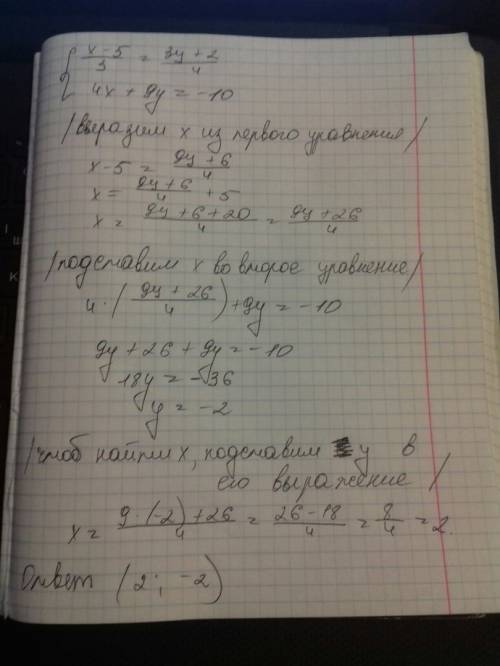 { x-5/3 = 3y+2/4
4x + 9y = -10
/выразим x из первого уравнения/
x-5 = 9y+6/4
x = 9y+6/4 + 5
x = 9y+6+20/4 = 9y+26/4
/подставим x во второе уравнение/
4·(9y+26/4)+9y = -10
9y+26+9y = -10
18y = -36
y = -2
/чтоб найти x, подставим y в
его выражение/
x = 9·(-2)+26/4 = 26-18/4 = 8/4 = 2.
Ответ (2; -2)